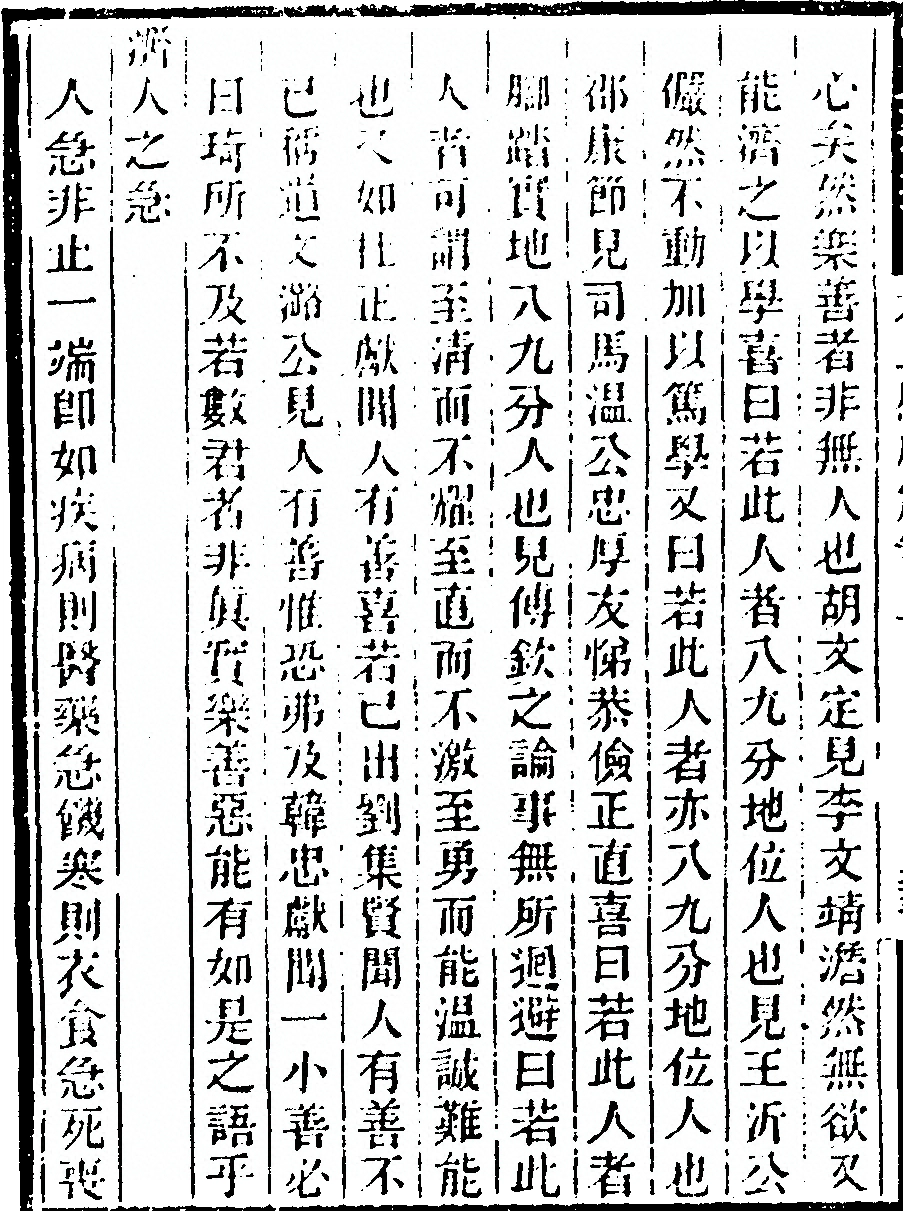 心矣然樂善者非無人也胡文定見李文靖澹然無欲又
能濟之以學喜曰若此人者八九分地位人也見王沂公
儼然不動加以篤學又曰若此人者亦八九分地位人也
邵康節見司馬溫公忠厚友悌恭儉正直喜曰若此人者
腳踏實地八九分人也見傅欽之論事無所迴避曰若此
人者可謂至清而不燿至直而不激至勇而能溫誠難能
也又如杜正獻聞人有善喜若已出劉集賢聞人有善不
已稱道文潞公見人有善惟恐弗及韓忠獻聞一小善必
曰琦所不及若數君者非真實樂善惡能有如是之語乎
濟人之急
人急非止一端卽如疾病則醫藥急饑寒則衣食急死喪